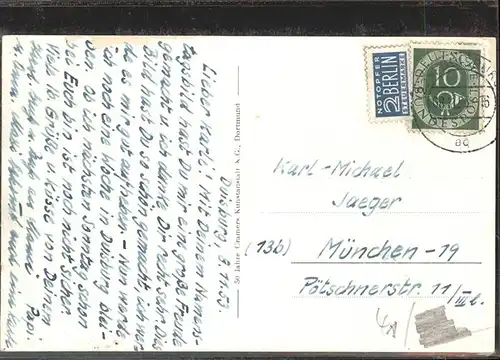 Duisburg, 8. 11. 52.
Lieber Karli! Mit Deinem Namens-
tagsbild hast Du mir eine große Freude
gemacht u. ich danke Dir recht sehr. Das
Bild hast Du so schön gemacht, ich werde
de es mir gut aufheben. - Nun werde
ich noch eine Woche in Duisburg blei-
ben, ob ich nächsten Sonntag schon
bei Euch bin ist noch nicht sicher.
Viele Grüße u. Küsse von Deinem
Papi.
50 Jahre Cramers Kunstanstalt KG., Dortmund
NOTOPFER
2 BERLIN
STEUERMARKE
10
DEUTSCHE
BUNDESPOST
Karl-Michael
Jaeger
(13b) München-19
Pötschnerstr. 11/III